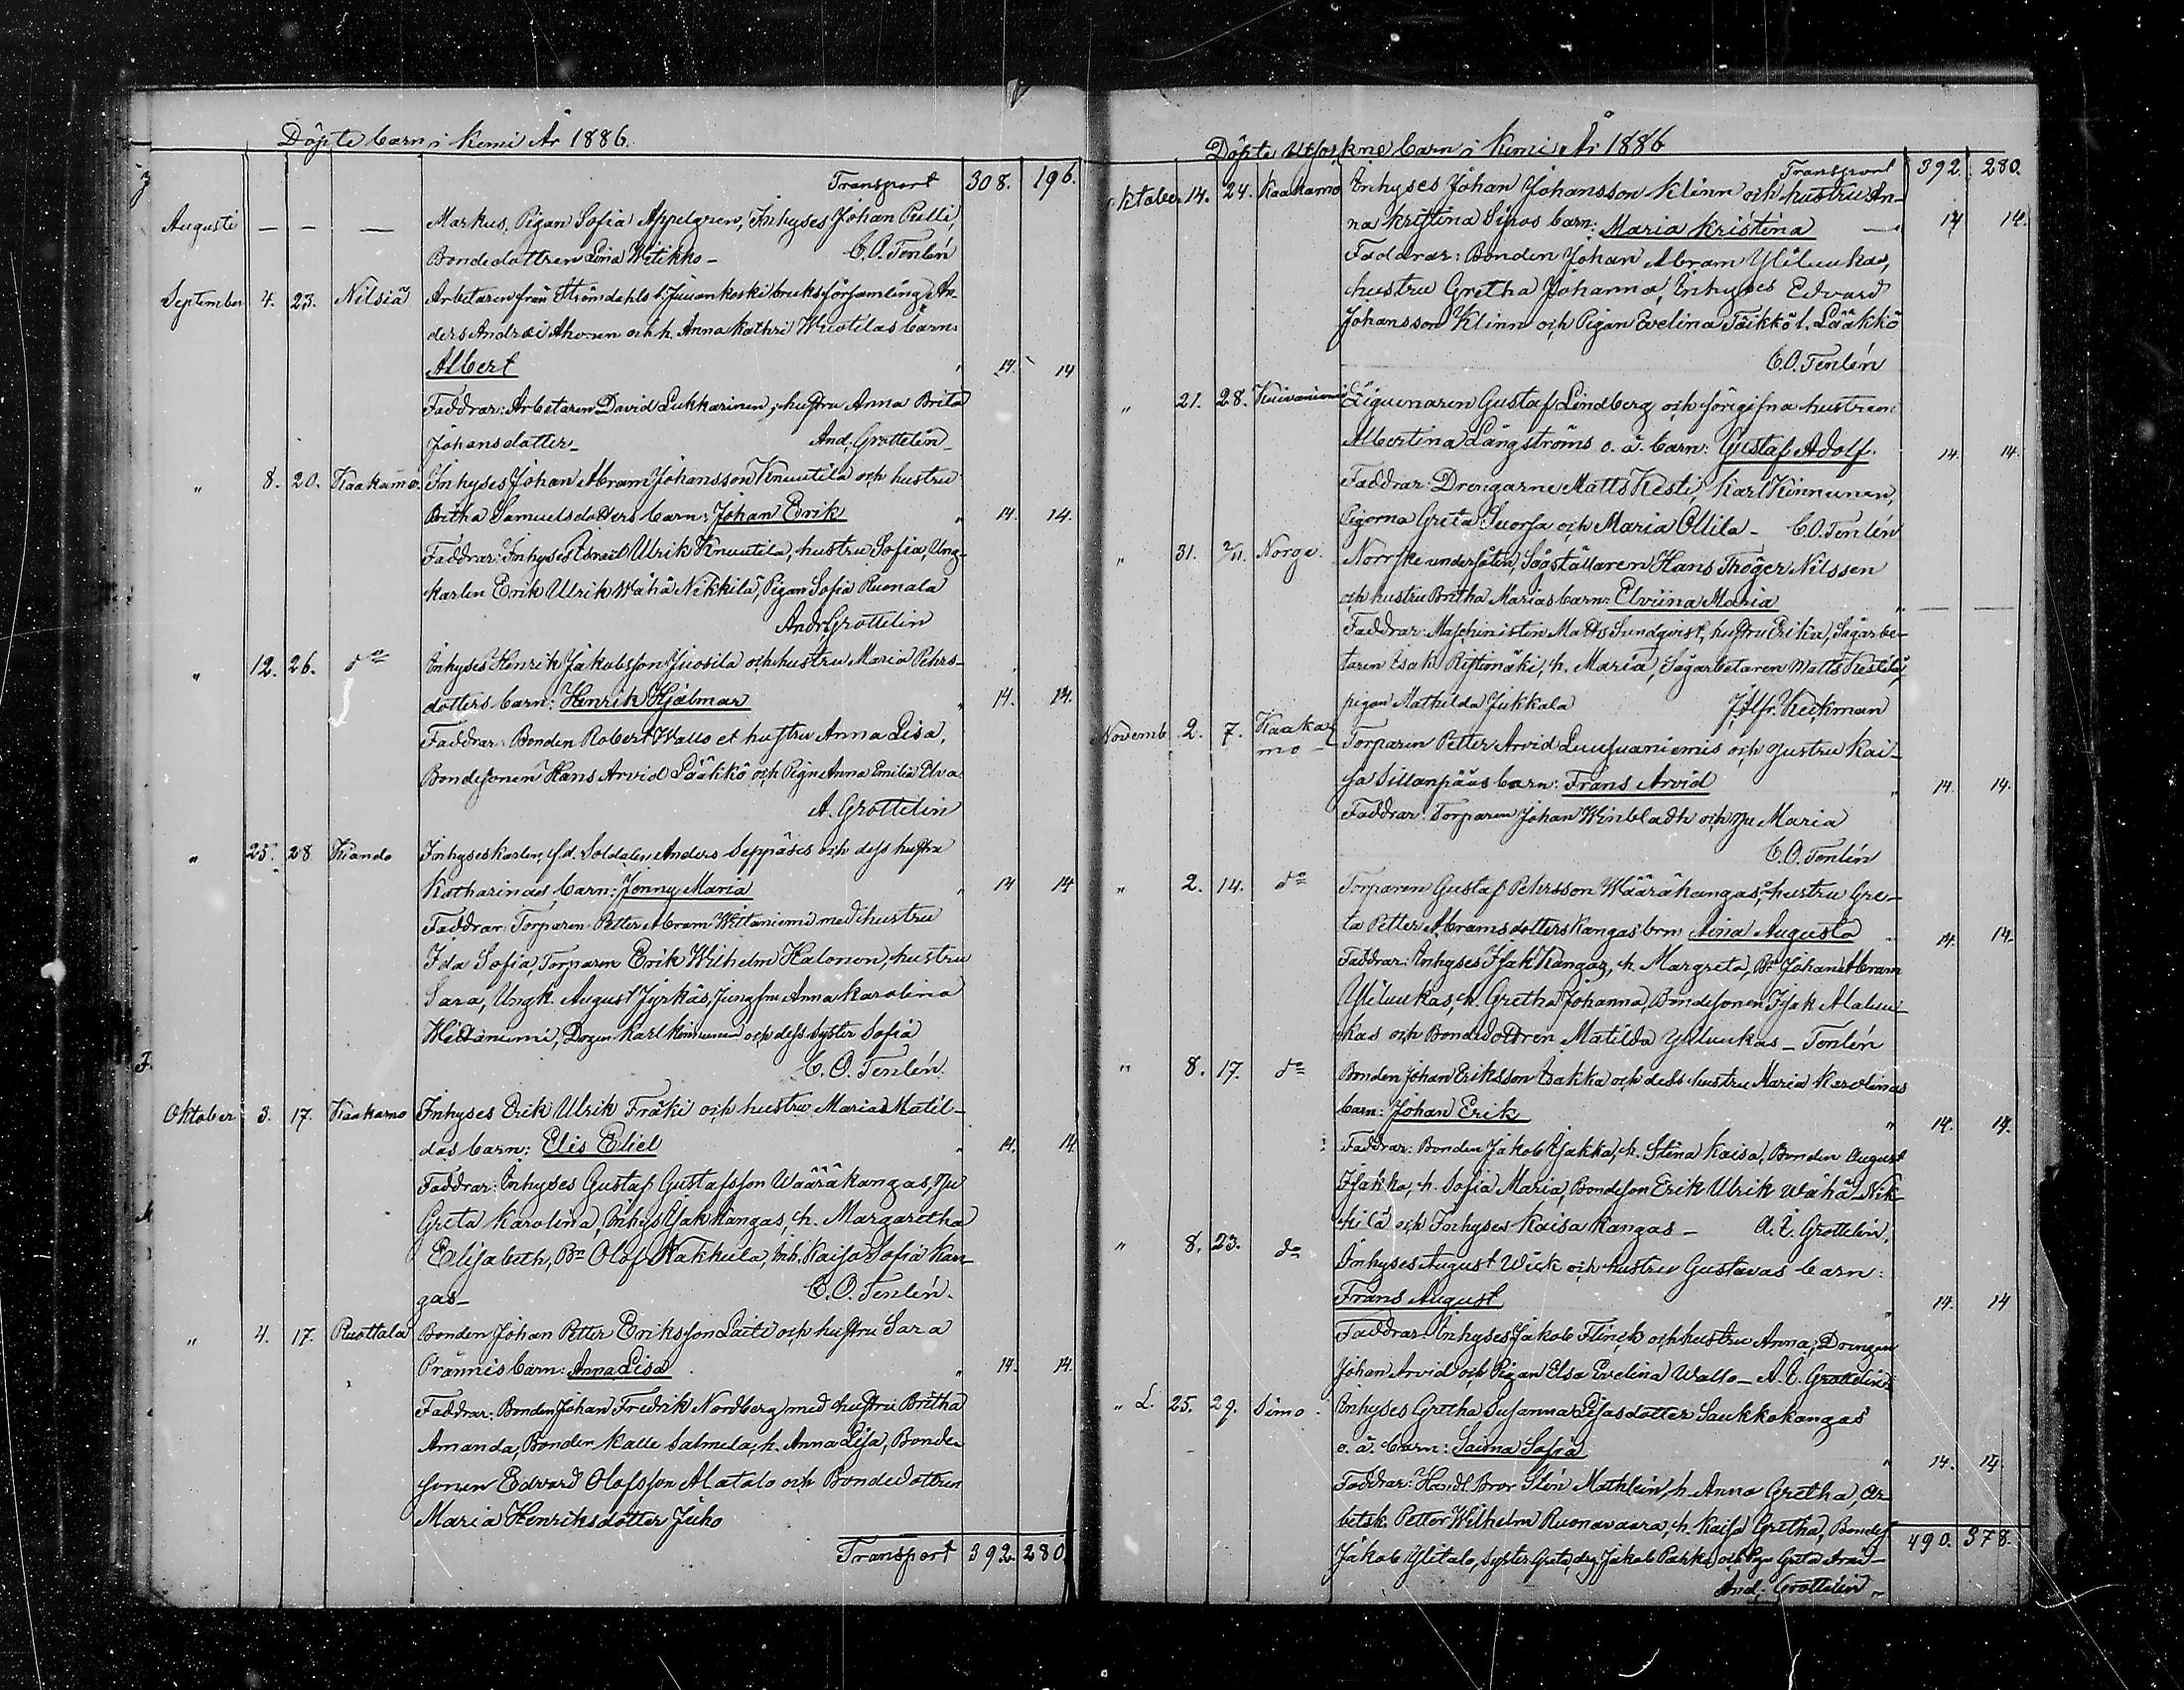 Döpte barn i Kemi År 1886.
Transport 308. 196.
Augusti — — — Markus, Pigan Sofia Appelgren, Inhyses Johan Pulli,
Bondedottren Lina Witikko — C. O. Tenlén
September 4. 23. Nilsiä Arbetaren från Strömdahls l. Juuankoski bruksförsamling An-
ders Andrei Ahonen och h. Anna Kathri Wuotilas barn:
Albert " 14. 14
Faddrar: Arbetaren David Lukkarinen, hustru Anna Brita
Johansdotter — And. Grottelin —
" 8. 20. Kaakamo. Inhyses Johan Abram Johansson Knuutila och hustru
Britha Samuelsdotters barn: Johan Erik " 14. 14.
Faddrar: Inhyses Israel Ulrik Knuutila, hustru Sofia, Ung-
karlen Erik Ulrik Wähä Nikkilä, Pigan Sofia Ruonala
And. Grottelin
" 12. 26. do Inhyses Henrik Jakobsson Juosila och hustru Maria Pehrs-
dotters barn: Henrik Hjalmar " 14. 14.
Faddrar: Bonden Robert Wallo et hustru Anna Lisa,
Bondesonen Hans Arvid Lääkkö och Pign Anna Emilia Elva
A. Grottelin
" 25. 28 Kiando Inhyseskarlen, f.d. Soldaten Anders Seppäses och dess hustru
Katharinas barn: Jenny Maria " 14 14
Faddrar: Torparen Petter Abram Wittaniemi med hustru
Ida Sofia, Torparen Erik Wilhelm Halonen, hustru
Sara, Ungk. August Jyrkäs, Jungfru Anna Karolina
Wittaniemi, Dregen Karl Kinnunen och dess syster Sofia
C. O. Tenlén.
Oktober 3. 17. Kaakamo Inhyses Erik Ulrik Fräki och hustru Maria Matil-
das barn: Elis Eliel " 14. 14
Faddrar: Inhyses Gustaf Gustafsson Wääräkangas, Hu
Greta Karolina, Inhys Isak Kangas, h. Margaretha
Elisabeth, Bn Olof Hakkula, Inh. Kaisa Sofia Kan-
gas — C. O. Tenlén.
" 4. 17. Ruottala Bonden Johan Petter Eriksson Laiti och hustru Sara
Prännis barn: Anna Lisa " 14. 14.
Faddrar: Bonden Johan Fredrik Nordberg med hustru Britha
Amanda, Bonden Kalle Salmela, h. Anna Lisa, Bonde-
sonen Edvard Olofsson Alatalo och Bondedottren
Maria Henriksdotter Juho
Transport 392. 280.
Döpte Utsoknes barn i Kemi År 1886
Transport 392. 280.
Oktober 14. 24. Kaakamo Inhyses Johan Johansson Klinn och hustru An-
na Kristina Sipos barn: Maria Kristina — 14 14.
Faddrar: Bonden Johan Abram Yliluukas,
hustru Gretha Johanna, Inhyses Edvard
Johansson Klinn och Pigan Evelina Täikkö l. Lääkkö
C. O. Tenlén
" 21. 28. Kuivaniemi Ligunaren Gustaf Lindberg och föregifna hustrun
Albertina Långströms o. ä. barn: Gustaf Adolf. 14. 14.
Faddrar: Drengarne Matts Kesti, Karl Kinnunen,
Pigorna Greta Suorsa och Maria Ollila — C. O. Tenlén
" 31. 7/11. Norge. Norrske undersåten, Sågställaren Hans Thöger Nilssen
och hustru Britha Marias barn: Elviina Maria " — —
Faddrar: Maschinisten Matts Sundqvist, hustru Erika, Sågarbe-
taren Isak Ristimäki, h. Maria, Sågarbetaren Matts
pigan Mathilda Jukkala J. Alfr. Keckman
Novemb. 2. 7. Kaaka-
mo — Torparen Petter Arvid Luusuaniemis och hustru Kai-
sa Sillanpääs barn: Frans Arvid " 14. 14.
Faddrar: Torparen Johan Winbladh och Hu Maria
C. O. Tenlén
" 2. 14. do Torparen Gustaf Pehrsson Wääräkangas, hustru Gre-
ta Petter Abramsdotters Kangas' brn Aina Augusta " 14. 14.
Faddrar: Inhyses Isak Kangas, h. Margreta, Bn Johan Abram
Yliluukas, h. Gretha Johanna, Bondesonen Isak Alaluu-
kas och Bondedottren Matilda Yliluukas — Tenlén
" 8. 17. do Bonden Johan Eriksson Isakka och dess hustru Maria Karolinas
barn: Johan Erik " 14. 14.
Faddrar: Bonden Jakob Isakka, h. Stina Kaisa, Bonden August
Isakka, h. Sofia Maria, Bondeson Erik Ulrik Wähä Nik-
kilä och Inhyses Kaisa Kangas — A. E. Grottelin.
" 8. 23. do Inhyses August Wiik och hustru Gustavas barn:
Frans August " 14. 14
Faddrar: Inhyses Jakob Flinck och hustru Anna, Drengen
Johan Arvid och Pigan Elsa Evelina Wallo — A. E. Grottelin
" L. 25. 29. Simo. Inhyses Gretha Susanna Lisasdotter Saukkokangas'
o. ä. barn: Saima Sofia " 14. 14.
Faddrar: Handl. Bror Sten Mathlein, h. Anna Gretha, Ar-
betsk. Petter Wilhelm Ruonavaara, h. Kaisa Gretha, Bondes
Jakob Ylitalo, syster Greta, deg Jakob Parkki och Pign Greta
And. Grottelin
490. 378.